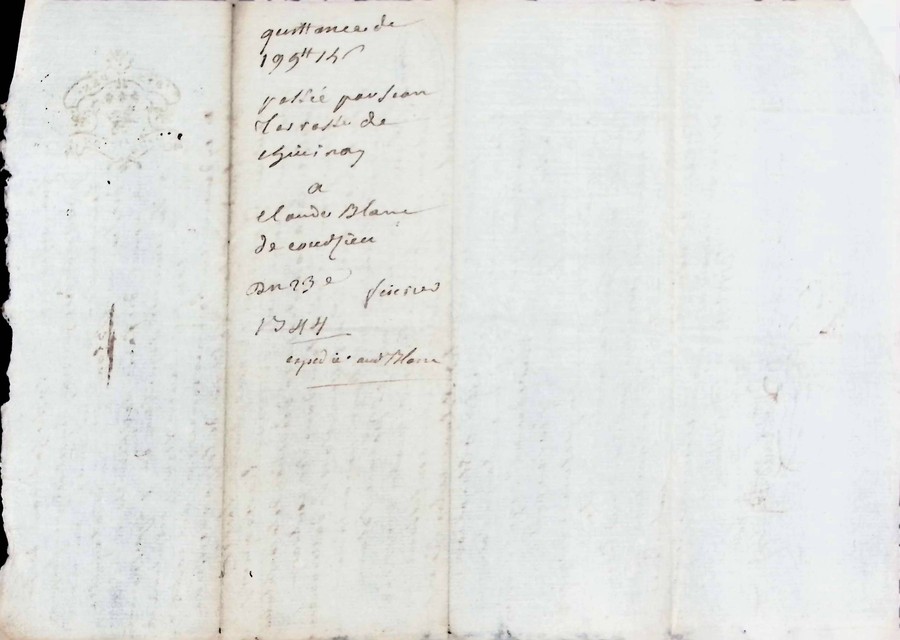 quittance de
199tt 15s
passée par Jean
Terrasse de
a
Claude Blanc
de
Du 23e fevrier
1744
expedié aud Blanc